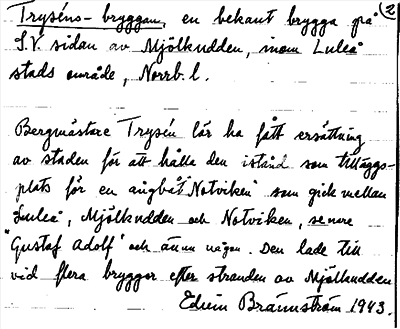 Tryséns-bryggan, en bekant brygga på (2
S.V. sidan av Mjölkudden, inom Luleå
stads område, Norrb. l.
Bergmästare Trysén lär ha fått ersättning
av staden för att hålla den istånd som tilläggs-
plats för en ångbåt "Notviken" som gick mellan
Luleå, Mjölkudden och Notviken, senare
"Gustaf Adolf" och ännu någon. Den lade till
vid flera bryggor efter stranden av Mjölkudden
Edvin Brännström 1943.